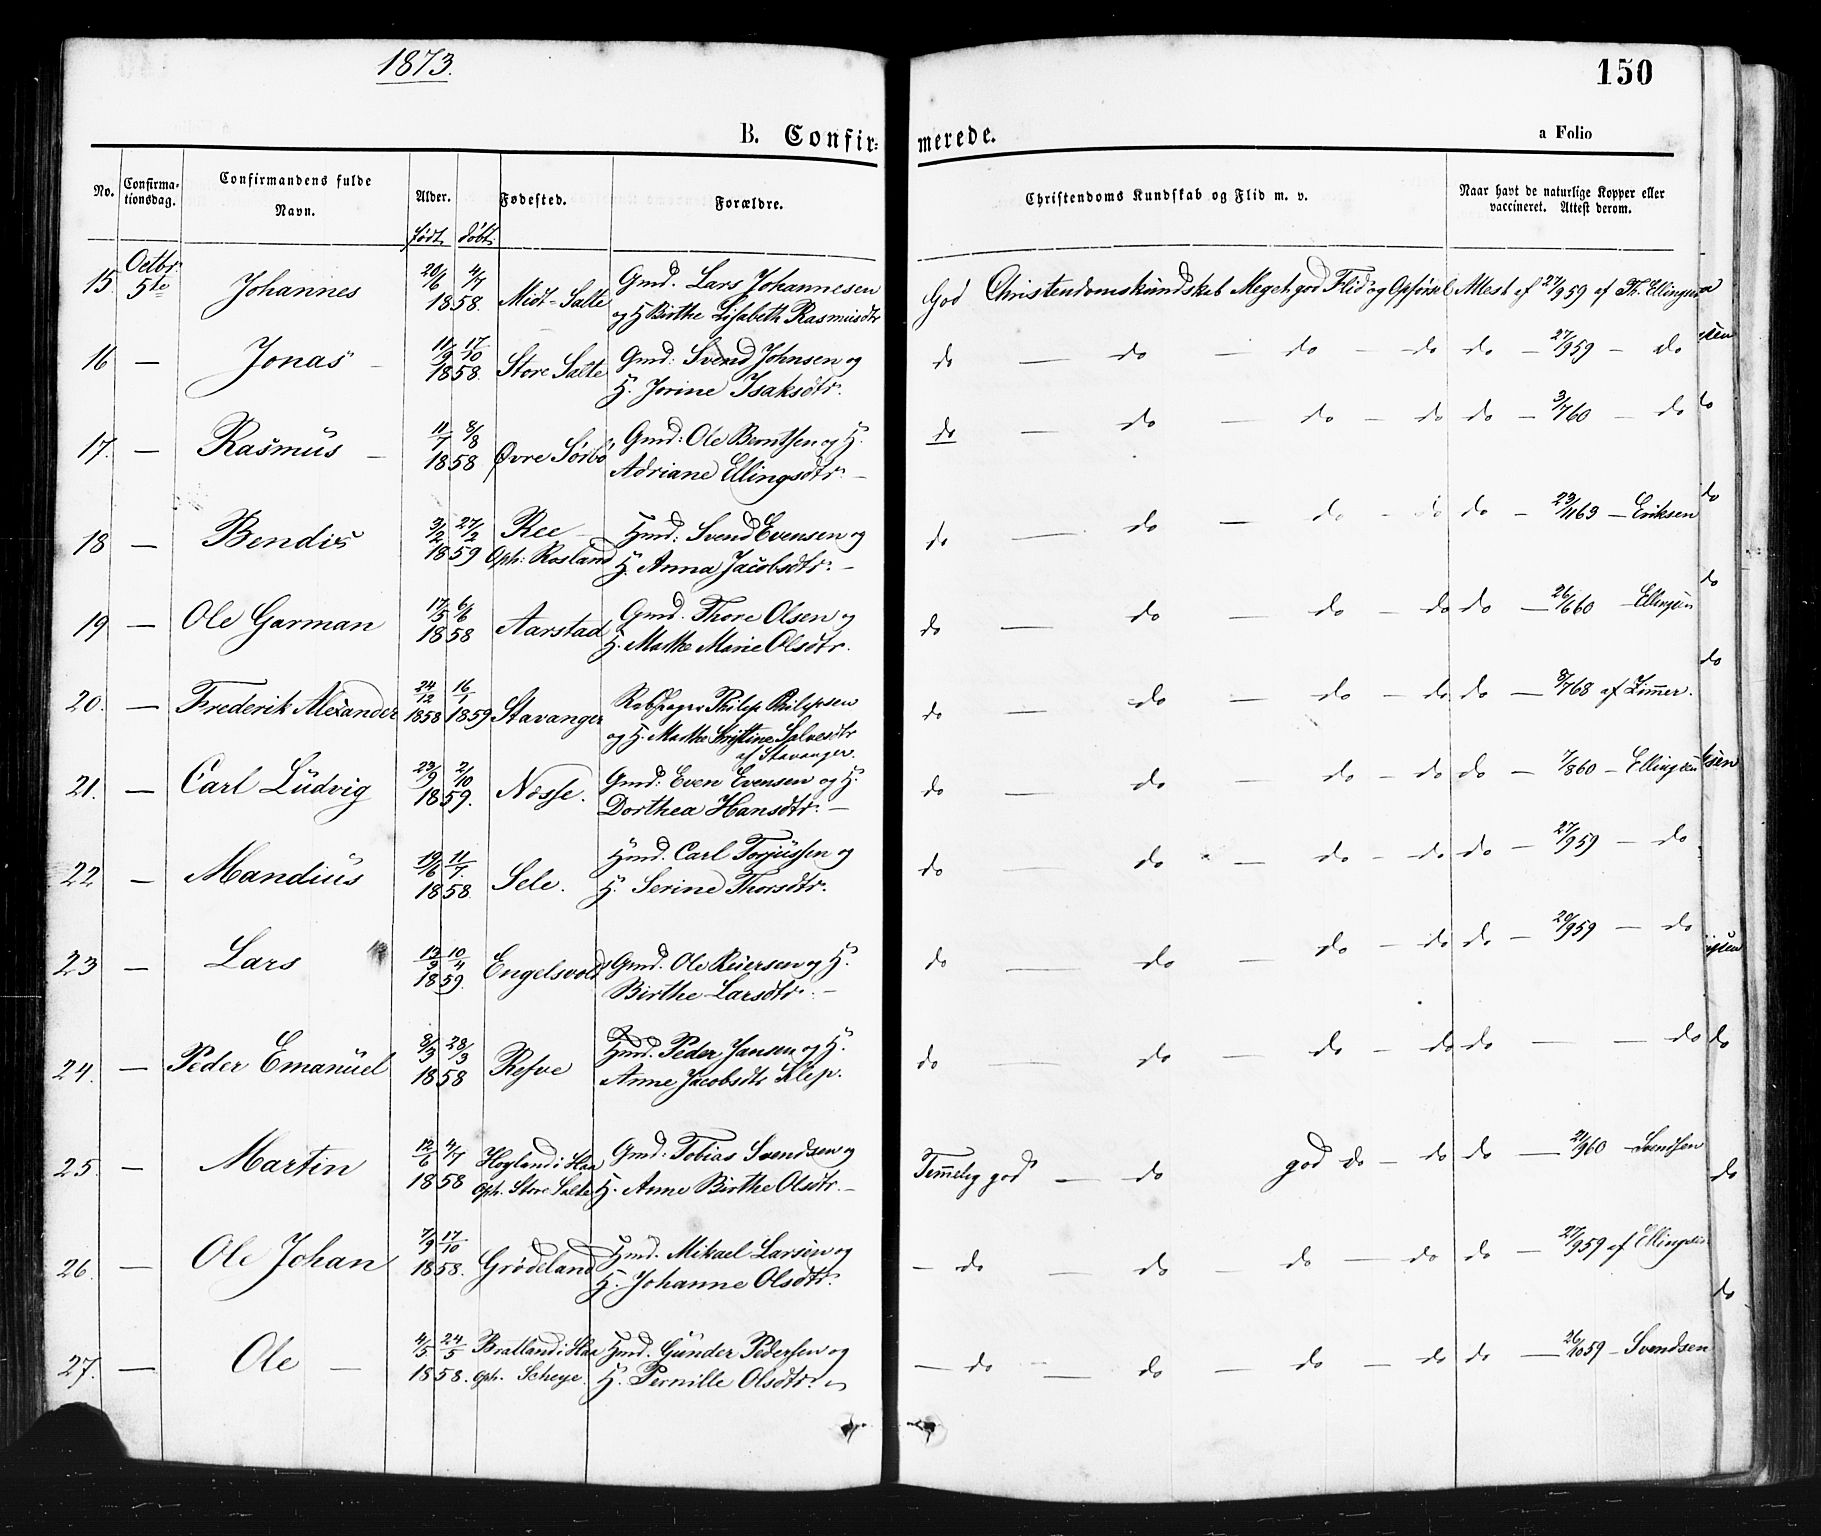 1873.
150
B. Confirmerede.
a Folio
No.
Confirmationsdag.
Confirmandens fulde Navn.
Alder.
født
døbt
Fødested.
Forældre.
Christendoms Kundskab og Flid m. v.
Naar havt de naturlige Kopper eller vaccineret. Attest derom.
15 Octbr 5te Johannes 20/6 4/7 1858. Midt-Salte Gmd. Lars Johannesen God Christendomskundskab Meget god Flid og Opførsel Attest af 27/9 59 af Th. Ellingsen
og H Birthe Lisabeth Rasmusdtr
16 — Jonas — 11/9 17/10 1858. Store Salte Gmd: Svend Johnsen og do — do — do — do do — 27/9 59 — do
H. Jorine Isaksdtr.
17. — Rasmus — 11/7 8/8 1858 Øvre Sørbø Gmd: Ole Berntsen og H. do — do — do — do do — 3/7 60 — do
Adriane Ellingsdtr. —
18 — Bendix 3/2 27/2 1859 Ree — Hmd: Svend Evensen og do — do — do — do do — 23/11 63 — Eriksen
Oph: Rosland H. Anna Jacobsdtr. —
19 — Ole Garman 17/5 6/6 1858 Aarstad Gmd. Thore Olsen og do — do — do — do do — 26/6 60 — Ellingsen
H. Marthe Marie Olsdtr.
20. — Frederik Alexander 24/12 1858 16/1 1859 Stavanger Philip Philipsen do — do — do — do do — 8/7 68 af Zimmer.
og H. Marthe Kristine Salvesdtr
af Stavanger.
21. — Carl Ludvig 23/9 2/10 1859. Næsse. Gmd: Even Evensen og H. do — do — do — do do — 7/8 60 — Ellingsen
Dorthea Hansdtr. —
22 — Mandius 19/6 11/7. 1858. Sele. Hmd. Carl Torjussen og do — do — do — do do — 27/9 59 — do
H. Serine Thorsdtr.
23 — Lars 12/3 10/4 1859. Engelsvold Gmd. Ole Reiersen og H. do — do — do — do do — 20/9 59 — do
Birthe Larsdtr. —
24. — Peder Emanuel 8/3 28/3 1858 Refve Hmd. Peder Jansen og H. do — do — do — do do — — do
Anne Jacobsdtr Klep.
25. — Martin 12/6 4/7 1858 Høyland i Haa Gmd: Tobias Svendsen og Temmelig god — do god do — do do — 21/9 60 — Svendsen
Oph. Store Salte H. Anne Birthe Olsdtr. —
26. — Ole Johan 7/9 17/10 1858. Grødeland Hmd. Mikael Larsen og — do — do — do — do do — 27/9 59 af Ellingsen
H. Johanne Olsdtr.
27. — Ole — 4/5 24/5 1858. Bratland i Haa Hmd. Gunder Pedersen og — do — do — do — do do — 26/10 59 — Svendsen
oph. H. Pernille Olsdtr.